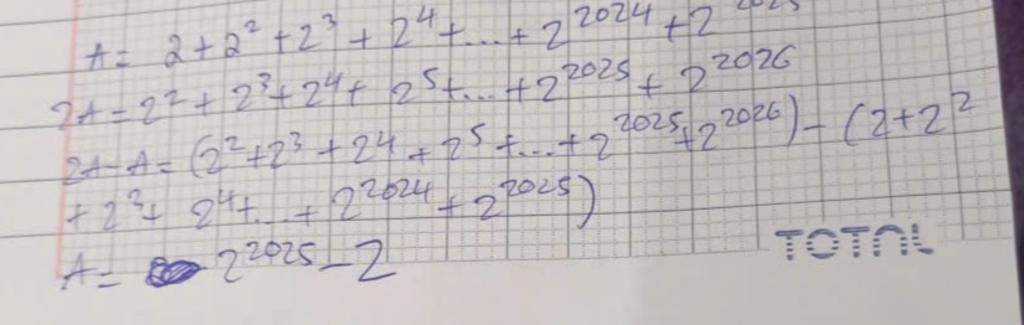 A = 2 + 2² + 2³ + 2⁴ + ... + 2²⁰²⁴ + 2²⁰²⁵
2A = 2² + 2³ + 2⁴ + 2⁵ + ... + 2²⁰²⁵ + 2²⁰²⁶
2A - A = (2² + 2³ + 2⁴ + 2⁵ + ... + 2²⁰²⁵ + 2²⁰²⁶) - (2 + 2²
+ 2³ + 2⁴ + ... + 2²⁰²⁴ + 2²⁰²⁵)
A = 2²⁰²⁵ - 2
TOTAL